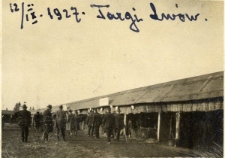 12/IX. 1927. Targi Lwów.